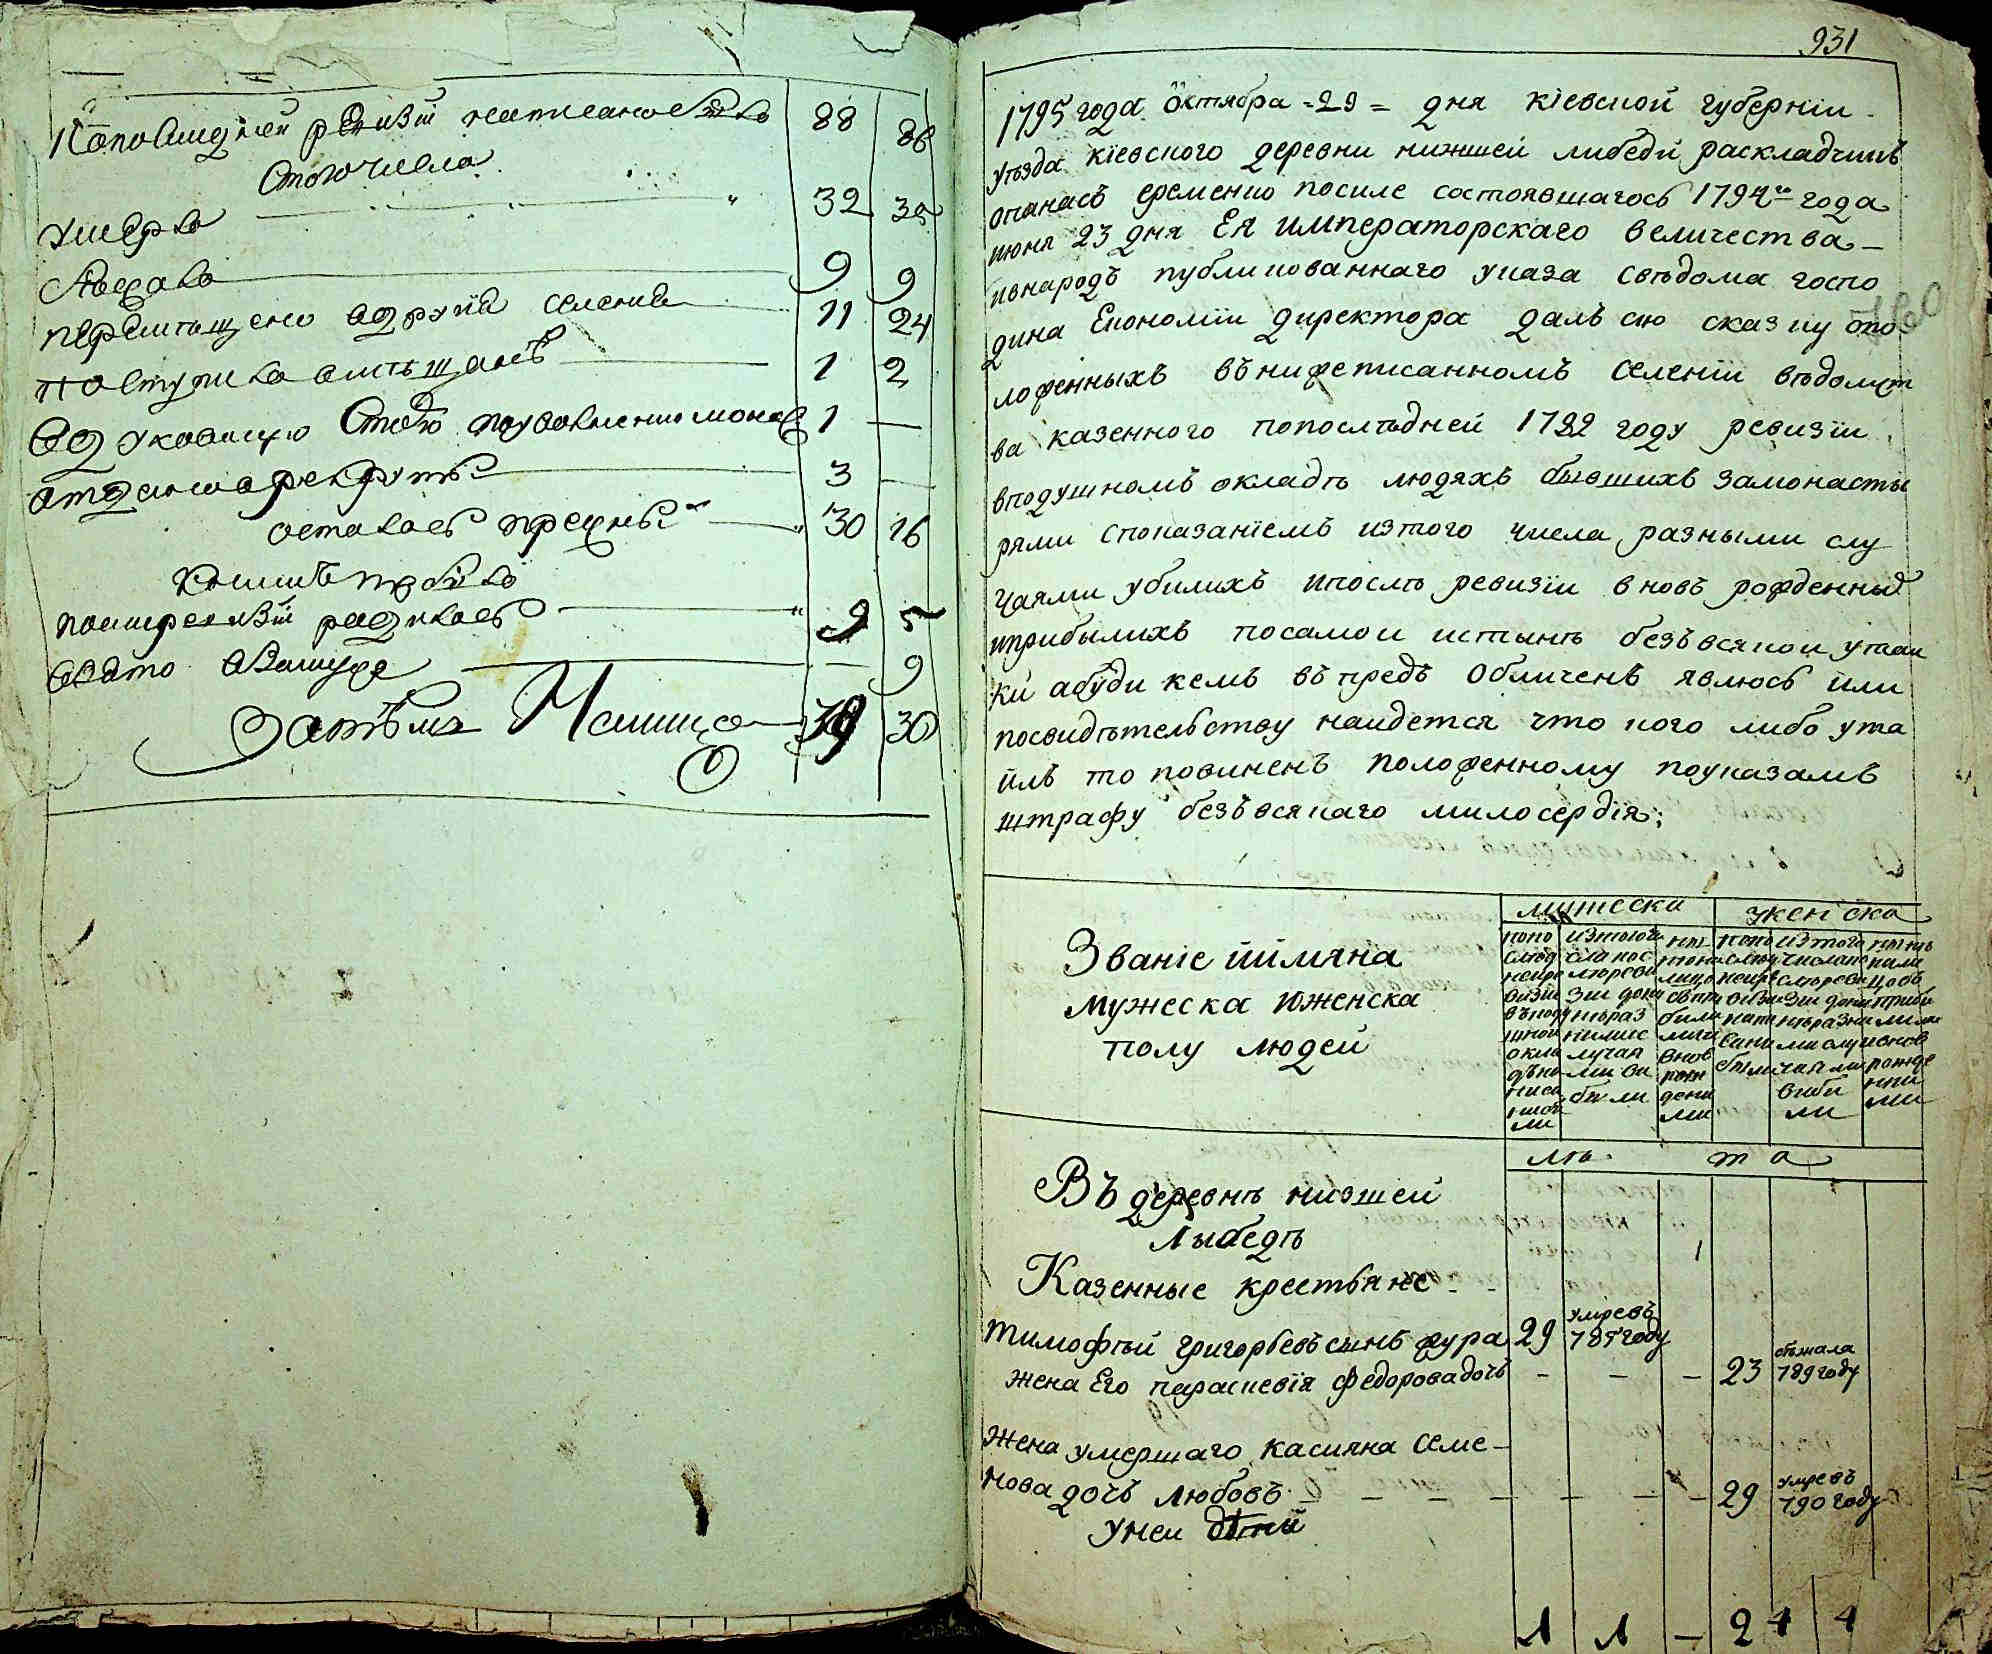 Попослидней ревизіи написано было 88 86
Стого числа
умерло 32 35
бежало 9 9
перемещено вдругіе селении 11 24
поступило вмещане 1 2
3 —
осталось прежныхъ 30 16
Книмъ прибыло
послиревизіи родилось 9 5
взято взамуже — 9
Затѣмъ Налицо 39 30
931
1795 года Октября = 29 = дня кіевской губерніи
уѣзда кіевского деревни нижшей либеди раскладчикъ
опанасъ еременко посиле состоявшагось 1794го года
июня 23 дня Ея императорскаго величества
внародъ публикованнаго указа свѣдома госпо
дина Економіи директора далъ сю сказку опо
ложенныхъ въ нижеписанномъ селеніи вѣдомст
ва казенного попослѣдней 1782 году ревизіи
вподушномъ окладѣ людяхъ бывшихъ замонасты
рями споказаніемъ изтого числа разными слу
чаями убилихъ ипослѣ ревизіи вновь рожденныхъ
иприбылихъ посамой истынѣ безъ всякой утай
ки абуди кемъ въ предъ обличенъ явлюсь или
посвидѣтельству найдется что кого либо ута
илъ то повиненъ положенному поуказамъ
штрафу безъ всякаго милосердія;
Званіе иймяна
мужеска иженска
полу людей
мужеска
женска
попо слюд нейре визіи въподу шной окла дъна писа
изтого чи сла пос люреви зіи дона разними случая ми ви били
нынѣ налицо сприбилими ивновь рожденими
попослюд нейревизіи написани были
изтого числапослюревизіи донинѣразними случаями вибили
нынѣ налицо сприбилими ивновь рожденними
лѣ та
Въ деревнѣ низшей
Лыбедѣ
Казенные крестьяне
тимофѣй григорьевъ сынъ жура 29 умревъ 785 году
жена Его параскевія федорова дочь — — — 23 сбежала 789 году
жена умершаго касияна семе-
нова дочь любовъ — — — 29 умревъ 790 году
уней дѣти
1 1 — 2 1 1